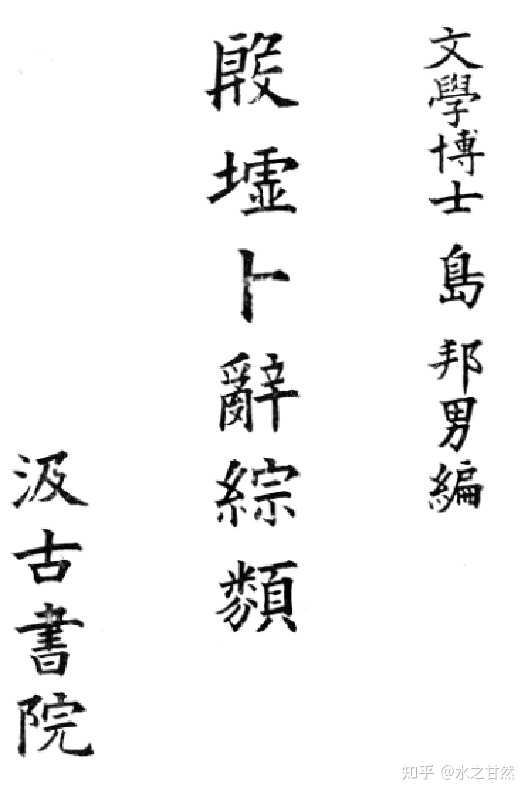 文學博士 島 邦男編
殷墟卜辭綜類
汲古書院
知乎 @水之甘然